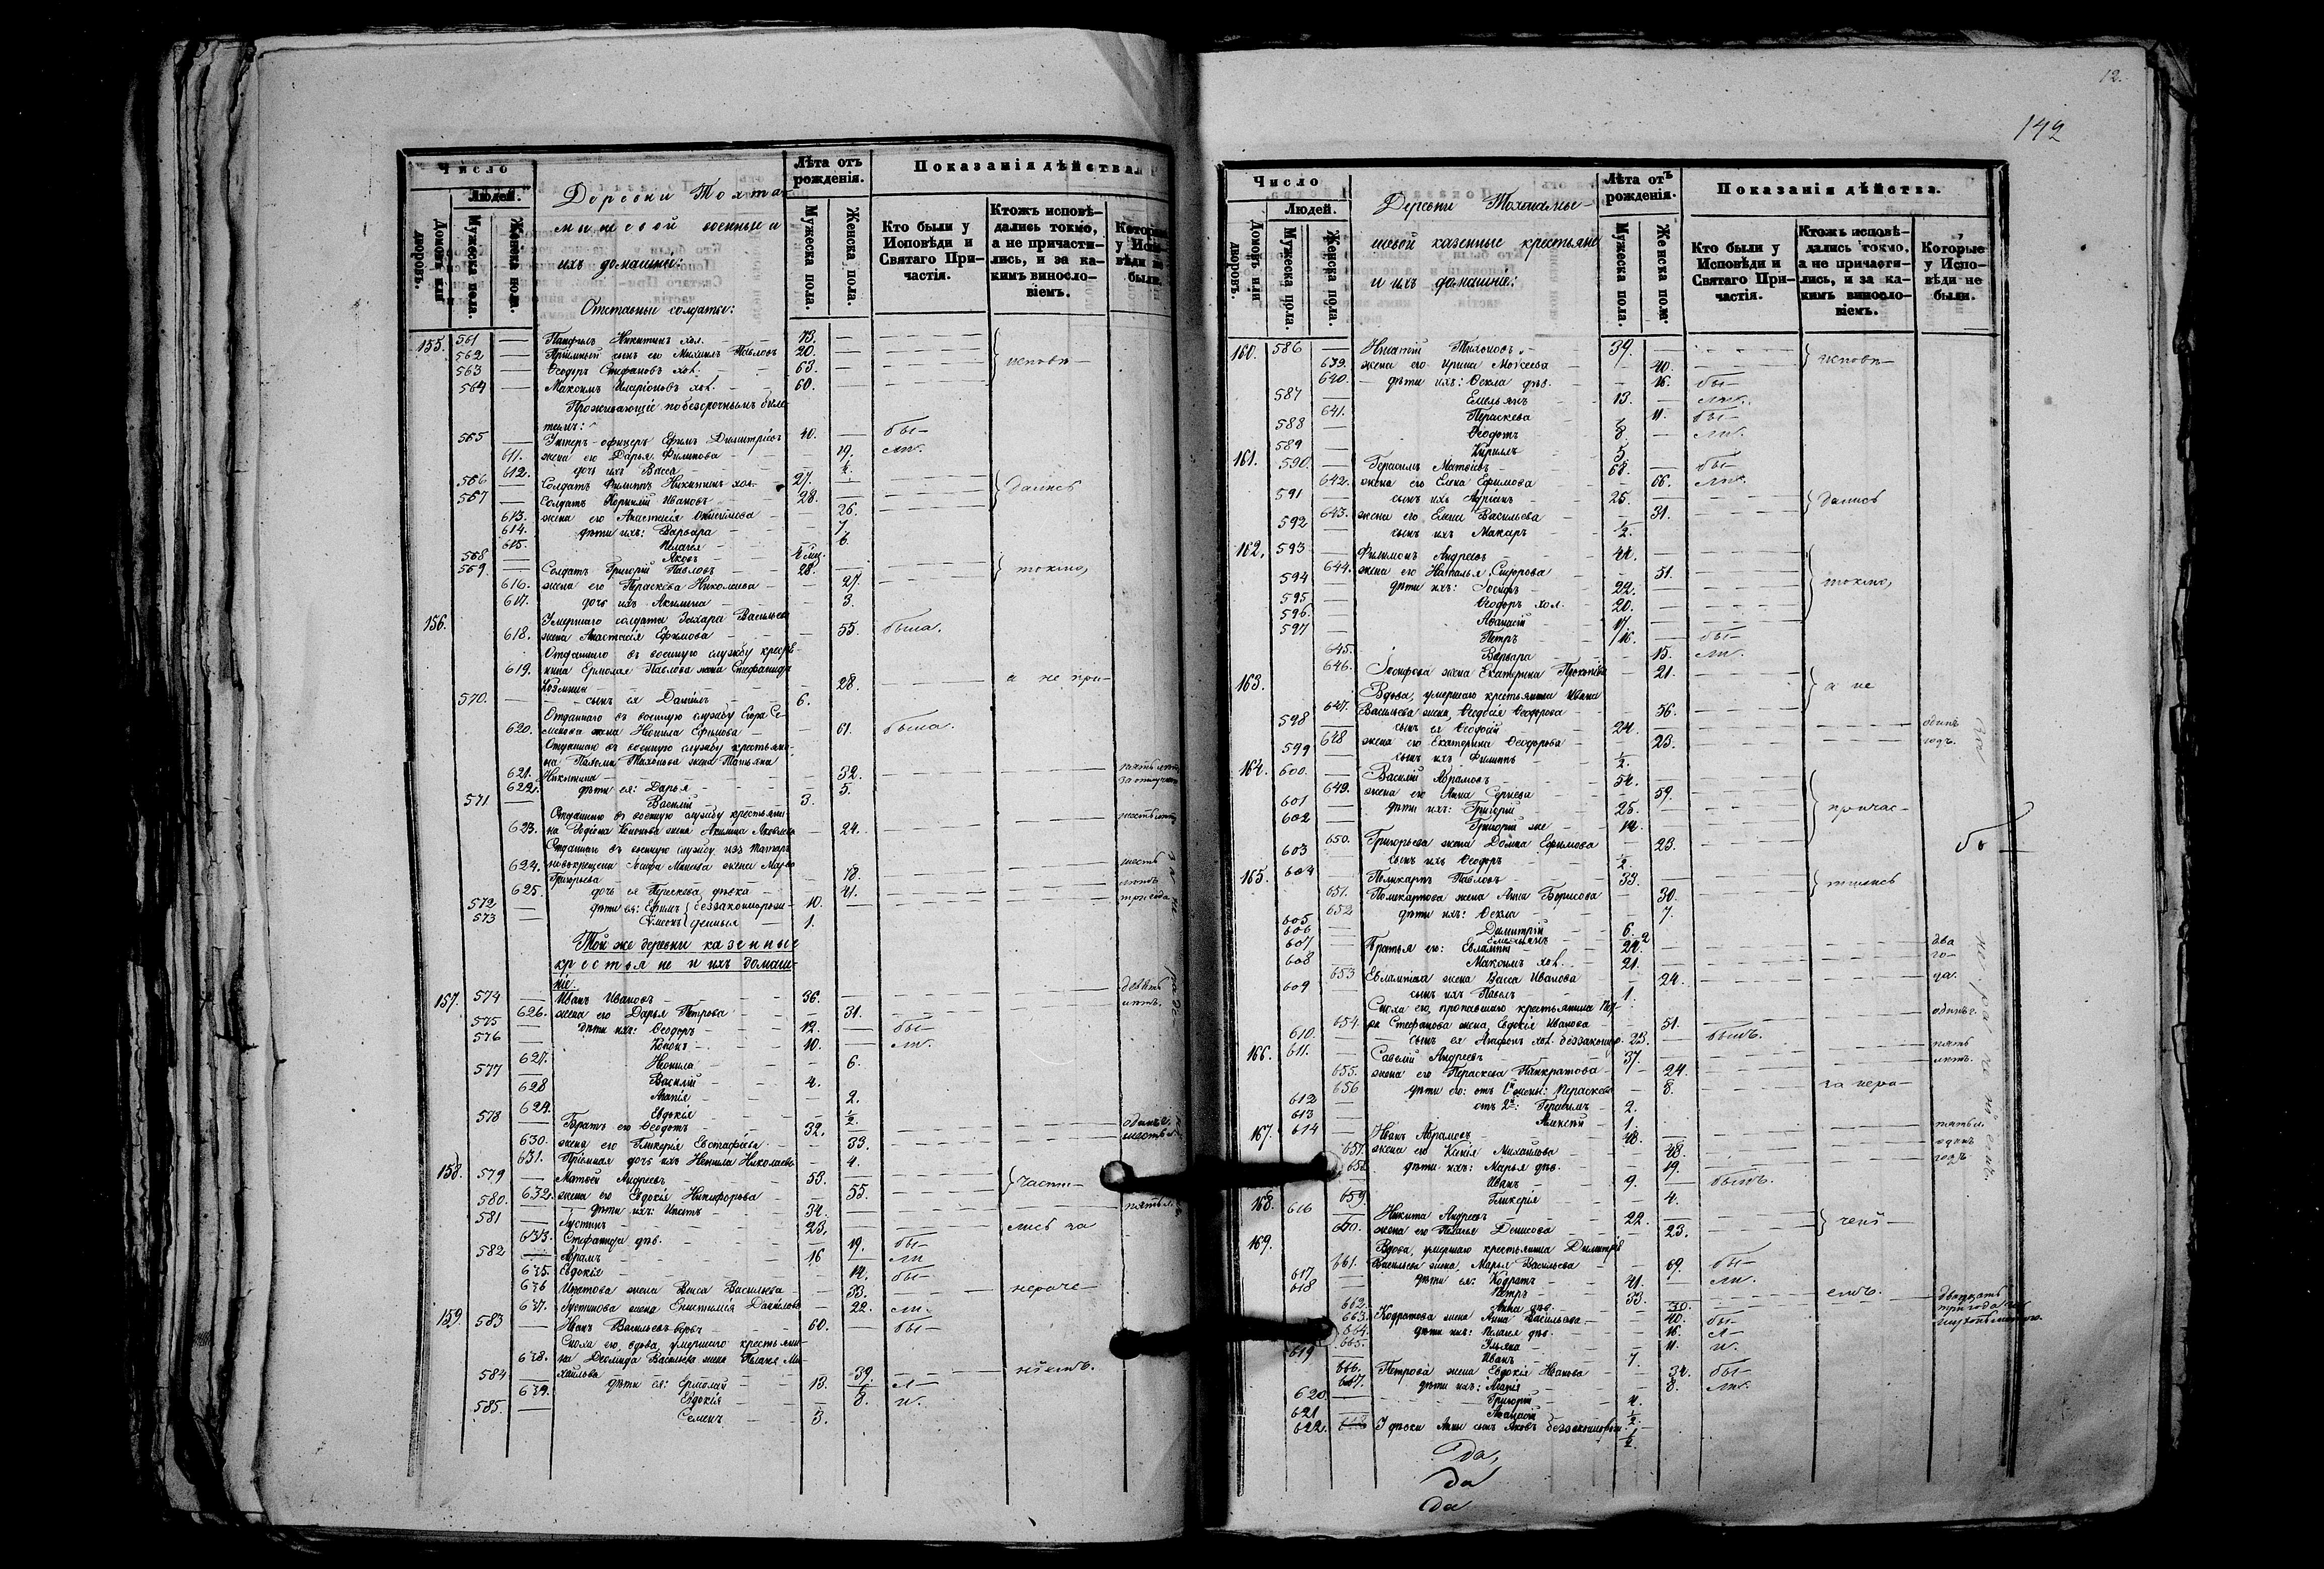 Число
Людей.
Домовъ или дворовъ.
Мужеска пола.
Женска пола.
Деревни Тохта-
мышевой военные и
ихъ домашніе:
Отставные солдаты:
Лѣта отъ рожденія.
Мужеска пола.
Женска пола.
Показанія дѣйства
Кто были у Исповѣди и Святаго При-частія.
Ктожъ исповѣ-дались токмо, а не причасти-лись, и за ка-кимъ винослo-віемъ.
Которые у Испо-вѣди не были.
155. 561 Панфилъ Никитинъ хол. 73.
562 Пріемный сынъ его Михаилъ Павловъ 20.
563 Ѳеодоръ Стефановъ хол. 63. исповѣ-
564 Максимъ Иларіоновъ хол. 60.
Проживающіе по безсрочнымъ биле-
тамъ:
565 Унтеръ-офицеръ Ефимъ Димитріевъ 40. бы-
611. жена его Дарья Филипова 19. ли.
612. дочь ихъ Васса 1/2.
566 Солдатъ Филиппъ Никитинъ хол. 27.
567 Солдатъ Корнилій Ивановъ 28. дались
613. жена его Анастасія 26.
614. дѣти ихъ: Варвара 7
615. Пелагея 6.
568 Яковъ 4 мц.
569 Солдатъ Григорій Павловъ 28. токмо,
616. жена его Параскева Николаева 27.
617. дочь ихъ Акилина 3.
156. Умершаго солдата Захара Васильева
618. жена Анастасія Ефимова 55. была.
Отданнаго въ военную службу крестья-
619. нина Ермолая Павлова жена Стефанида
Козмина 28. а не при-
570. сынъ ея Даніилъ 6.
Отданнаго въ военную службу Егора Се-
620. менова жена Неонила Ефимова 61. была.
Отданнаго въ военную службу крестьяни-
на Павла Тихонова жена Татьяна
621. Никитина 32.
622. дѣти ея: Дарья 5.
571 Василій 3.
Отданнаго въ военную службу крестьяни-
623. на Родіона Кононова жена Акилина Яковлева 24.
Отданнаго въ военную службу изъ татаръ
624. новокрещена Іосифа Минѣева жена Марѳа
Григорьева 48.
625. дочь ея Параскева дѣвка 41. три года
572 дѣти ея: Ефимъ } беззаконнорож- 10.
573 Симеонъ } денныя 1.
Той же деревни казенные
крестьяне и ихъ домаш-
ніе.
157. 574 Иванъ Ивановъ 36. девять
626. жена его Дарья Петрова 31. лѣтъ.
575 дѣти ихъ: Ѳеодоръ 12. бы-
576 Кононъ 10. ли.
627. Неонила 6.
577 Василій 4.
628 Агапія 2.
629. Евдокія 1/2.
578 Братъ его Ѳеодотъ 32.
630. жена его Гликерія Евстафіева 33.
631. Пріемная дочь ихъ Неонила Николаева 4.
158. 579 Матѳей Андреевъ 53. части-
632. жена его Евдокія Никифорова 55.
580. дѣти ихъ: Игнатъ 34.
581 Іустинъ 23. лись за
633. Стефанида дѣв. 19. бы-
582 Абрамъ 16 ли
635. Евдокія 14. бы-
636 Игнатова жена Васса Васильева 33. нераче-
637. Іустинова жена Епистимія Данилова 22. ли.
159. 583 Иванъ Васильевъ вдовъ 60. бы-
Сноха его, вдова, умершаго крестьяни-
638. на Деомида Васильева жена Пелагея Ми-
хаилова 39. ніемъ.
584 дѣти ея: Ермолай 13. л-
639. Евдокія 8. и.
585. Семенъ 3.
12.
142
Число
Людей.
Домовъ или дворовъ.
Мужеска пола.
Женска пола.
Деревни Тохтамы-
шевой казенные крестьяне
и ихъ домашніе:
Лѣта отъ рожденія.
Мужеска пола.
Женска пола.
Показанія дѣйства.
Кто были у Исповѣди и Святаго При-частія.
Ктожъ исповѣ-дались токмо, а не причасти-лись, и за ка-кимъ винослo-віемъ.
Которые у Испо-вѣди не были.
160. 586 Игнатій Тихоновъ 39. исповѣ-
639. жена его Ирина Моисеева 40.
640. дѣти ихъ: Ѳекла дѣв. 16. бы-
587 Емельянъ 13. ли.
641. Параскева 11. бы-
588 Ѳеодотъ 8. ли.
589 Кириллъ 5.
161. 590. Герасимъ Матвѣевъ 68. бы-
642. жена его Елена Ефимова 66. ли.
591 сынъ ихъ Адріанъ 25. дались
643. жена его Елена Васильева 31.
592 сынъ ихъ Макаръ 1/2.
162. 593 Филимонъ Андреевъ 44.
644. жена его Наталья Сидорова 51.
594 дѣти ихъ: Іосифъ 22. токмо,
595 Ѳеодоръ хол. 20.
596. Аѳанасій 17.
597 Петръ 16. бы-
645. Варвара 15. ли.
646. Іосифова жена Екатерина 21.
163. Вдова, умершаго крестьянина Ивана а не
647. Васильева жена, Ѳеодосія Ѳеодорова 56.
598 сынъ ея Ѳеодосій 24. одинъ
648 жена его Екатерина Ѳеодорова 23. годъ.
599 сынъ ихъ Филиппъ 1/2.
164. 600. Василій Абрамовъ 54.
649. жена его Анна Сергѣева 59.
601 дѣти ихъ: Григорій 25. причас-
602 Григорій же 14.
650. Григорьева жена Домна Ефимова 23.
603 сынъ ихъ Ѳеодоръ 1/2.
165. 604 Поликарпъ Павловъ 33. тились
651. Поликарпова жена Анна Борисова 30.
652 дѣти ихъ: Ѳекла 7.
605 Димитрій 6.
606 Емельянъ 2
607 Братья его: Евлампій 24. два
608 Максимъ хол. 21. го-
653 Евлампіева жена Васса Иванова 24. да.
609 сынъ ихъ Павелъ 1.
Сноха его, пропавшаго крестьянина
654. Стефанова жена, Евдокія Иванова 51.
610. сынъ ея Агафонъ хол. беззаконнор. 23. былъ.
166. 611. Савелій Андреевъ 37. пять
655. жена его Параскева Панкратова 24. лѣтъ.
656 дѣти его: отъ 1й жены: Параскева 8. за нера-
612 отъ 2й: Герасимъ 2.
613 Алексѣй 1.
167. 614 Иванъ Абрамовъ 48.
657. жена его Ксенія Михаилова 48. одинъ
658 дѣти ихъ: Марья дѣв. 19. годъ
Иванъ 9. былъ.
659. Гликерія 4.
168. 616 Никита Андреевъ 22. чені-
660. жена его Пелагея Денисова 23.
169. Вдова, умершаго крестьянина Димитрія
661. Васильева жена, Марья Васильева 69. бы-
617 дѣти ея: Кодратъ 41. ли.
618 Петръ 33. емъ.
662. Анна дѣв. 30.
663. Кодратова жена Анна Васильева 40. бы-
664. дѣти ихъ: Пелагея дѣв. 16. л-
665. Ульяна 11. и.
619 Иванъ 7.
666. Петрова жена Евдокія Иванова 34. бы-
667. дѣти ихъ: Агапія 8. ли.
620. Григорій 4.
621 Аѳанасій 1/2.
622. 668 У дѣвки Анны сынъ Яковъ беззаконнорож. 1/2.
Да,
Да
Да